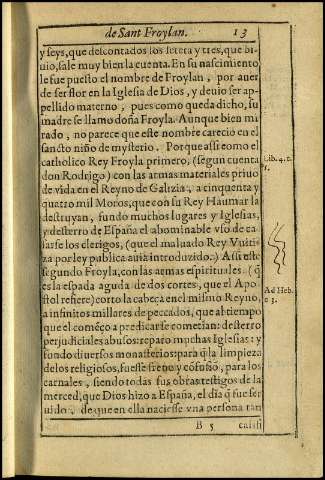 de Sant Froylan. 13
y seys, que descontados los seteta y tres, que bi-
uio, sale muy bien la cuenta. En su nascimiento
le fue puesto el nombre de Froylan, por auer
de ser flor en la Iglesia de Dios, y deuio ser ap-
pellido materno, pues como queda dicho, su
madre se llamo doña Froyla. Aunque bien mi
rado, no parece que este nombre carecio en el
sancto niño de mysterio. Porque assi como el
catholico Rey Froyla primero, (segun cuenta
don Rodrigo) con las armas materiales priuo
de vida en el Reyno de Galizia, a cinquenta y
quatro mil Moros, que con su Rey Haumar la
destruyan, fundo muchos lugares y Iglesias,
y desterro de España el abominable vso de ca-
sarse los clerigos, (que el maluado Rey Vuiti-
za por ley publica auia introduzido.) Assi este
segundo Froyla, con las armas espirituales (q̃
es la espada aguda de dos cortes, que el Apo-
stol refiere) corto la cabeça en el mismo Reyno,
a infinitos millares de peccados, que al tiempo
que el comẽço a predicar se cometian: desterro
perjudiciales abusos: reparo muchas Iglesias: y
fundo diuersos monasterios: para q̃ la limpieza
de los religiosos, fuesse freno y cõfusiõ, para los
carnales, siendo todas sus obras testigos de la
merced, que Dios hizo a España, el dia q̃ fue ser
uido, de que en ella naciesse vna persona tan
B 5
Lib. 4. c.
Ad Heb.
c 3.